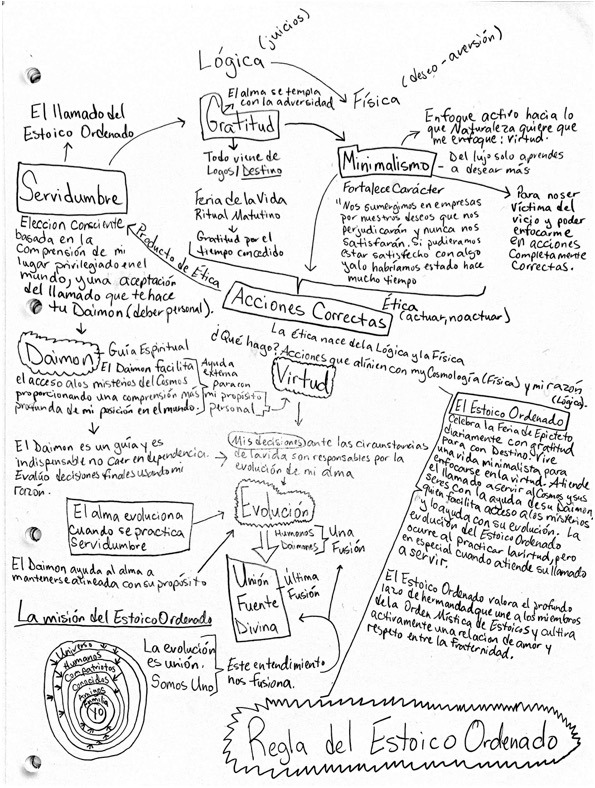 Lógica
(juicios)
Física
(deseo-aversión)
El llamado del
Estoico Ordenado
El alma se templa
con la adversidad
Gratitud
Todo viene de
Logos/Destino
Feria de la Vida
Ritual Matutino
Gratitud por el
tiempo concedido
Enfoque activo hacia lo
que Naturaleza quiere que
me enfoque: virtud.
Minimalismo
- Del lujo solo aprendes
a desear más
Fortalece Carácter
"Nos sumergimos en empresas
por nuestros deseos que nos
perjudicarán y nunca nos
satisfarán. Si pudieramos
estar satisfecho con algo
ya lo habríamos estado hace
mucho tiempo
Para no ser
víctima del
vicio y poder
enfocarme
en acciones
completamente
correctas.
Servidumbre
Eleccion Consciente
basada en la
comprensión de mi
lugar privilegiado en el
mundo, y una aceptación
del llamado que te hace
tu Daimon (deber personal).
Producto de Ética
Acciones Correctas
Ética
(actuar, no actuar)
La ética nace de la Lógica y la Física
¿Qué hago? Acciones que alinien con my Cosmología (Física) y mi razón
(Lógica).
Daimon
- Guía Espiritual
El Daimon facilita
el acceso a los misterios del Cosmos
proporcionando una comprensión más
profunda de mi posición en el mundo.
Ayuda
externa
para con
mi propósito
personal
Virtud
El Daimon es un guía y es
indispensable no caer en dependencia.
Evalúo decisiones finales usando mi
razon.
Mis decisiones ante las circunstancias
de la vida son responsables por la
evolución de mi alma
El alma evoluciona
cuando se practica
Servidumbre
Evolución
Humanos
Daimones
Una
Fusión
El Daimon ayuda al alma a
mantenerse alineada con su propósito
Unión
Fuente
Divina
Última
Fusión
La misión del Estoico Ordenado
Universo
Humanos
Compatriotas
Conocidos
Amigos
Familia
YO
La evolución
es unión.
Somos Uno
Este entendimiento
nos fusiona.
El Estoico Ordenado
Celebra la Feria de Epicteto
diariamente con gratitud
para con Destino. Vive
una vida minimalista para
enfocarse en la virtud. Atiende
el llamado a servir al Cosmos y sus
seres con la ayuda de su Daimon,
quien facilita acceso a los misterios
y lo ayuda con su evolución. La
evolución del Estoico Ordenado
ocurre al practicar la virtud, pero
en especial cuando atiende su llamado
a servir.
El Estoico Ordenado valora el profundo
lazo de hermandad que une a los miembros
de la Orden Mística de Estoicos y cultiva
activamente una relacion de amor y
respeto entre la fraternidad.
Regla del Estoico Ordenado